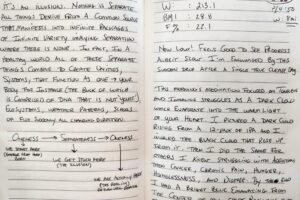 IT'S AN ILLUSION. NOTHING IS SEPARATE
ALL THINGS DERIVE FROM A COMMON SOURCE
THAT MANIFESTS INTO INFINITE PACKAGES
OF INFINITE VARIETY, MAKING SEPARATION
WHERE THERE IS NONE. IN FACT, IN A
HEALTHY WORLD ALL OF THESE SEPARATE
THINGS COMBINE TO CREATE UNITIES,
SYSTEMS, THAT FUNCTION AS ONE. YOUR
BODY FOR INSTANCE (THE BULK OF WHICH
IS COMPRISED OF DNA THAT IS NOT YOURS)
ECOSYSTEMS, WEATHER PATTERNS, SCHOOLS
OF FISH SUDDENLY ALL CHANGING DIRECTION.
ONENESS → SEPARATENESS → ONENESS
WE START HERE
WE GET STUCK HERE
(THE ILLUSION)
WE ARE ACTUALLY HERE
(THE REALITY)
W: 213.1
BMI: 28.8
F%: 22.1
NOW WOW! FEELS GOOD TO SEE PROGRESS
ALBEIT SLOW. I'M ENTHUSED BY THIS
SUDDEN DROP AFTER A SINGLE
THIS MORNING'S MEDITATION FOCUSED ON TONGLEN
AND IMAGINING STRUGGLES AS A DARK CLOUD
WHICH EVAPORATE INTO THE WHITE LIGHT
OF YOUR HEART. I PICTURED A DARK CLOUD
RISING FROM A 12-PACK OF IPA AND I
THE BLACK CLOUD THAT ROSE UP
FROM IT. THEN I DID THE SAME FOR
OTHERS I KNEW STRUGGLING WITH ADDICTION
THEN CANCER, CHRONIC PAIN, HUNGER,
HOMELESSNESS, AND DISEASE. IN
HAD A BRIGHT BLUE EMANATING FROM
THE CENTER OF ALL